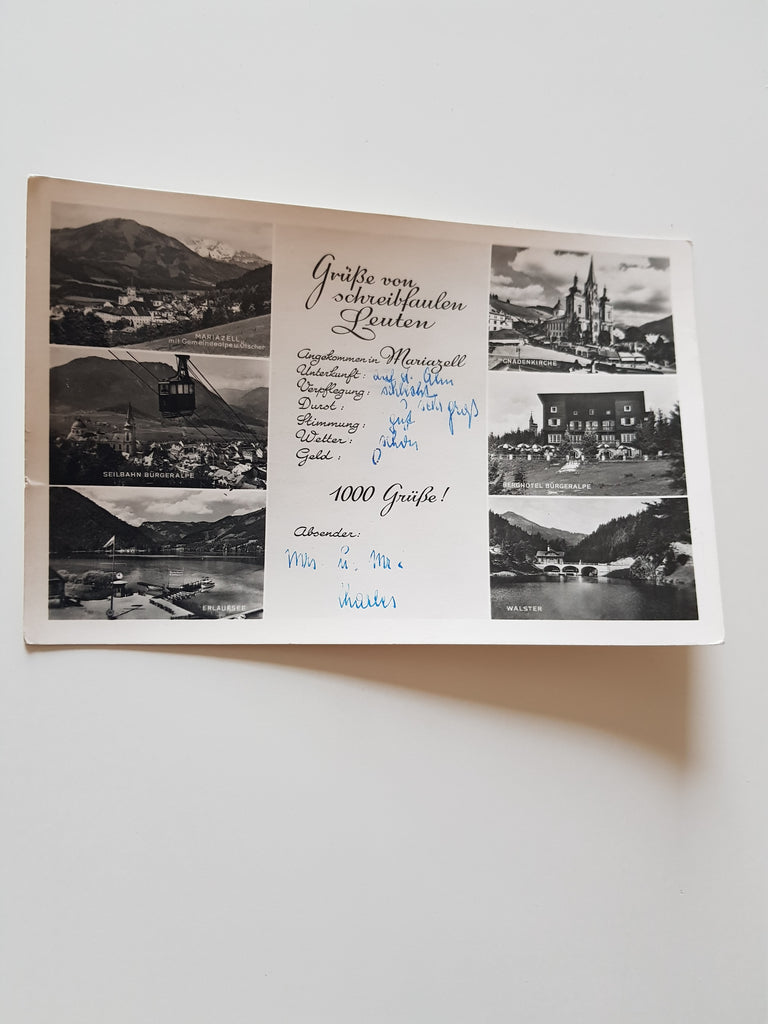 MARIAZELL
mit Gemeindealpe u. Ötscher
SEILBAHN BÜRGERALPE
ERLAUFSEE
Grüße von
schreibfaulen
Leuten
Angekommen in Mariazell
Unterkunft: auf d. Alm
Verpflegung: schlecht
Durst: sehr groß
Stimmung: gut
Wetter: schön
Geld: 0
1000 Grüße!
Absender:
u.
Charles
GNADENKIRCHE
BERGHOTEL BÜRGERALPE
WALSTER